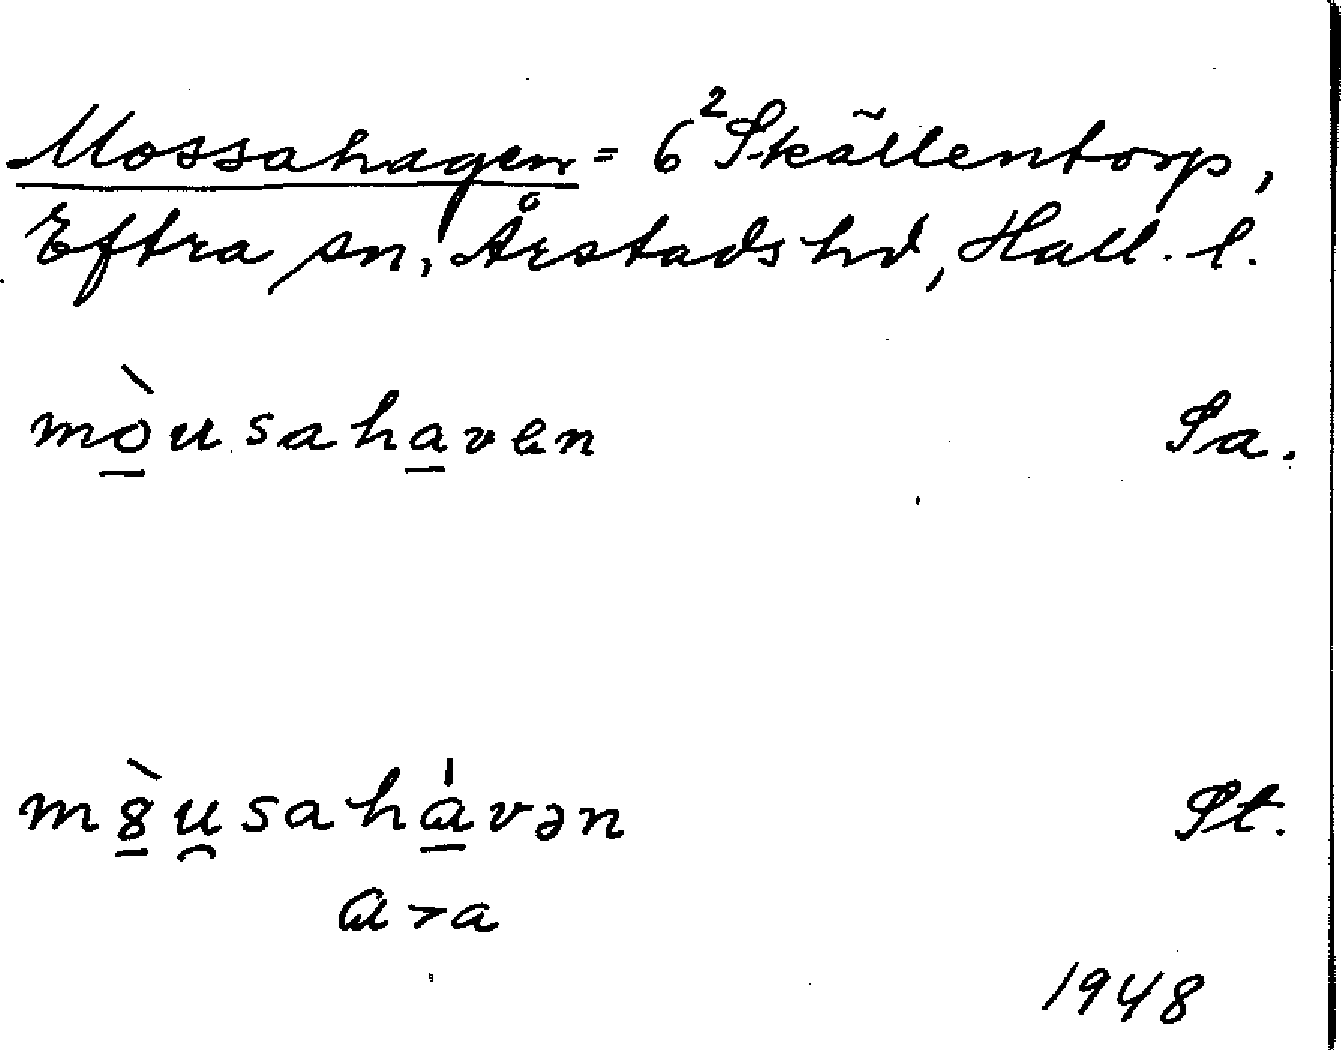 Mossahagen = 6² Skällentorp,
Eftra sn, Årstads hd, Hall. l.
mòu̇sahaven Sa.
m8̀u̯sahávən St.
ɑ > a
1948